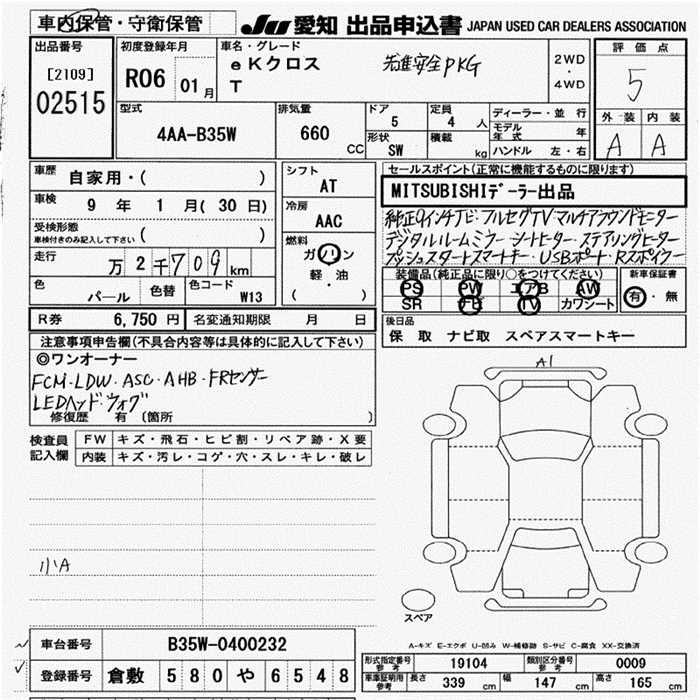 車内保管・守衛保管
JU 愛知 出品申込書 JAPAN USED CAR DEALERS ASSOCIATION
出品番号
[2109]
02515
初度登録年月
R06 01月
車名・グレード
eKクロス 先進安全PKG
T
2WD
・
4WD
評価点
5
外装 内装
A A
型式
4AA-B35W
排気量
660 CC
ドア 5
形状 SW
定員 4 人
積載 kg
ディーラー・並行
モデル年式 年
ハンドル 左・右
車歴 自家用・( )
車検 9 年 1 月( 30 日)
受検形態
車検付きのみ記入して下さい ( )
走行 万 2 千 709 km
色 パール 色替 色コード W13
シフト
AT
冷房
AAC
燃料
ガソリン
軽・油
( )
セールスポイント(正常に機能するものに限ります)
MITSUBISHIデーラー出品
純正9インチナビ・フルセグTV・マルチアラウンドモニター
デジタルルームミラー・シートヒーター・ステアリングヒーター
プッシュスタートスマートキー・USBポート・Rスポイラー
装備品(純正品に限り○をつけてください)
PS PW エアB AW
SR ナビ TV カワシート
新車保証書
有・無
R券 6,750 円 名変通知期限 月 日
後日品
保 取 ナビ取 スペアスマートキー
注意事項申告欄(不具合内容等は具体的に記入して下さい)
◎ワンオーナー
FCM・LDW・ASC・AHB・FRセンサー
LEDヘッド・フォグ
修復歴 有 〔箇所
検査員
記入欄
FW キズ・飛石・ヒビ割・リペア跡・X要
内装 キズ・汚レ・コゲ・穴・スレ・キレ・破レ
小A
A1
スペア
A-キズ E-エクボ U-凹み W-補修跡 S-サビ C-腐食 XX-交換済
車台番号 B35W-0400232
登録番号 倉敷 580 や 6548
型式指定番号 参考 19104 類別区分番号 参考 0009
車庫証明用 参考 長さ 339 cm 幅 147 cm 高さ 165 cm